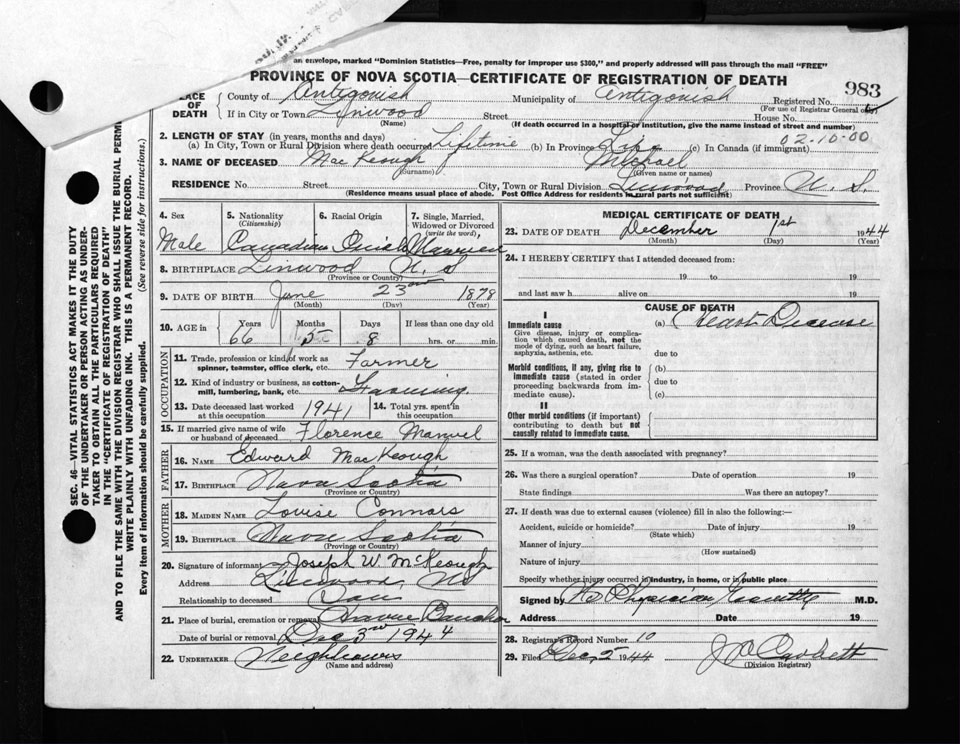 an envelope, marked "Dominion Statistics—Free, penalty for improper use $300," and properly addressed will pass through the mail "FREE"
PROVINCE OF NOVA SCOTIA—CERTIFICATE OF REGISTRATION OF DEATH
983
PLACE OF DEATH
County of Antigonish Municipality of Antigonish Registered No.
(For use of Registrar General only)
If in City or Town Lynwood Street House No.
(Name) (If death occurred in a hospital or institution, give the name instead of street and number)
02-10-00
2. LENGTH OF STAY (in years, months and days)
(a) In City, Town or Rural Division where death occurred Lifetime (b) In Province Life (c) In Canada (if immigrant)
3. NAME OF DECEASED Mac Keough Michael
(Surname) (Given name or names)
RESIDENCE No. Street City, Town or Rural Division Linwood Province N. S.
(Residence means usual place of abode. Post Office Address for residents in rural parts not sufficient)
4. Sex 5. Nationality (Citizenship) 6. Racial Origin 7. Single, Married, Widowed or Divorced (write the word),
Male Canadian Irish Married
8. BIRTHPLACE Linwood N. S
(Province or Country)
9. DATE OF BIRTH June 23rd 1878
(Month) (Day) (Year)
10. AGE in Years Months Days If less than one day old
66 5 8 hrs. or min.
OCCUPATION
11. Trade, profession or kind of work as spinner, teamster, office clerk, etc. Farmer
12. Kind of industry or business, as cotton-mill, lumbering, bank, etc. Farming.
13. Date deceased last worked at this occupation 1941 14. Total yrs. spent in this occupation
15. If married give name of wife or husband of deceased Florence Manuel
FATHER
16. NAME Edward MacKeough
17. BIRTHPLACE Nova Scotia
(Province or Country)
MOTHER
18. MAIDEN NAME Louise Connors
19. BIRTHPLACE Nova Scotia
(Province or Country)
20. Signature of informant Joseph W. McKeough
Address Linwood, NS
Relationship to deceased Son
21. Place of burial, cremation or removal Havre Boucher
Date of burial or removal Dec 3rd 1944
22. UNDERTAKER Neighbours
(Name and address)
MEDICAL CERTIFICATE OF DEATH
23. DATE OF DEATH December 1st 1944
(Month) (Day) (Year)
24. I HEREBY CERTIFY that I attended deceased from:
19 to 19
and last saw h alive on 19
CAUSE OF DEATH
I
Immediate cause (a) Heart Disease
Give disease, injury or complication which caused death, not the mode of dying, such as heart failure, asphyxia, asthenia, etc. due to
Morbid conditions, if any, giving rise to immediate cause (stated in order proceeding backwards from immediate cause). (b)
due to
(c)
II
Other morbid conditions (if important) contributing to death but not causally related to immediate cause.
25. If a woman, was the death associated with pregnancy?
26. Was there a surgical operation? Date of operation 19
State findings Was there an autopsy?
27. If death was due to external causes (violence) fill in also the following:—
Accident, suicide or homicide? Date of injury 19
(State which)
Manner of injury
(How sustained)
Nature of injury
Specify whether injury occurred in industry, in home, or in public place
Signed by No Physician M.D.
Address Date 19
28. Registrar's Record Number 10
29. Filed Dec. 5 1944
(Division Registrar)
SEC. 46—VITAL STATISTICS ACT MAKES IT THE DUTY
OF THE UNDERTAKER OR PERSON ACTING AS UNDER-
TAKER TO OBTAIN ALL THE PARTICULARS REQUIRED
IN THE "CERTIFICATE OF REGISTRATION OF DEATH"
AND TO FILE THE SAME WITH THE DIVISION REGISTRAR WHO SHALL ISSUE THE BURIAL PERM
WRITE PLAINLY WITH UNFADING INK. THIS IS A PERMANENT RECORD.
Every item of information should be carefully supplied. (See reverse side for instructions.)